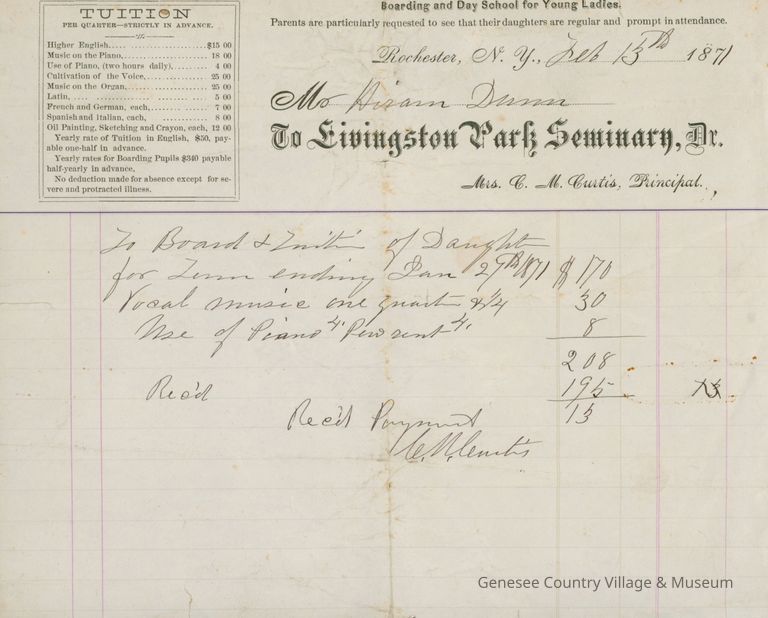 TUITION
PER QUARTER—STRICTLY IN ADVANCE.
Higher English.... $15 00
Music on the Piano, 18 00
Use of Piano, (two hours daily), 4 00
Cultivation of the Voice, 25 00
Music on the Organ, 25 00
Latin, 5 00
French and German, each, 7 00
Spanish and Italian, each, 8 00
Oil Painting, Sketching and Crayon, each, 12 00
Yearly rate of Tuition in English, $50, pay-
able one-half in advance.
Yearly rates for Boarding Pupils $340 payable
half-yearly in advance,
No deduction made for absence except for se-
vere and protracted illness.
Boarding and Day School for Young Ladies.
Parents are particularly requested to see that their daughters are regular and prompt in attendance.
Rochester, N. Y., Feb 13th 1871
Mr Hiram Dunn
To Livingston Park Seminary, Dr.
Mrs. C. M. Curtis, Principal.
To Board & Tuition of Daughter
for Term ending Jan 27th 1871 $ 170
Vocal music one quarter & 1/4 30
Use of Piano 8
208
Rec'd 195 13
13
Rec'd Payment
C. M. Curtis
Genesee Country Village & Museum